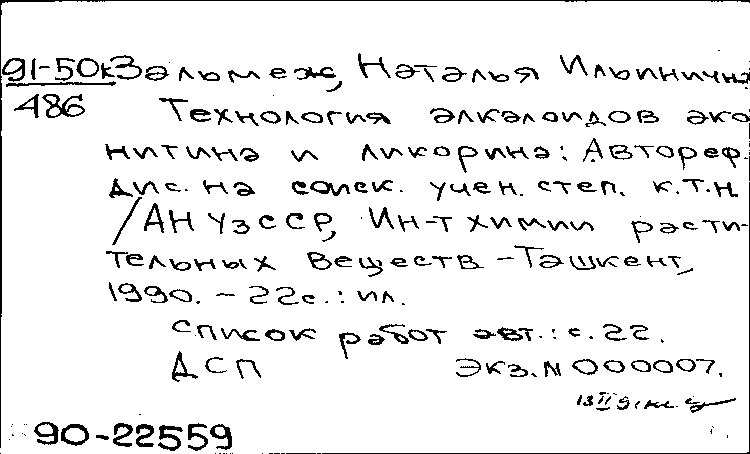 91-50к Зальмеж, Наталья Ильинична
486 Технология алкалоидов ако
нитина и ликорина: Автореф.
дис. на соиск. учен. степ. к.т.н.
/АН УзССР, Ин-т химии расти-
тельных веществ. - Ташкент,
1990. - 22с.: ил.
Список работ авт.: с.22.
ДСП Экз. N 000007.
13 II 91
90-22559